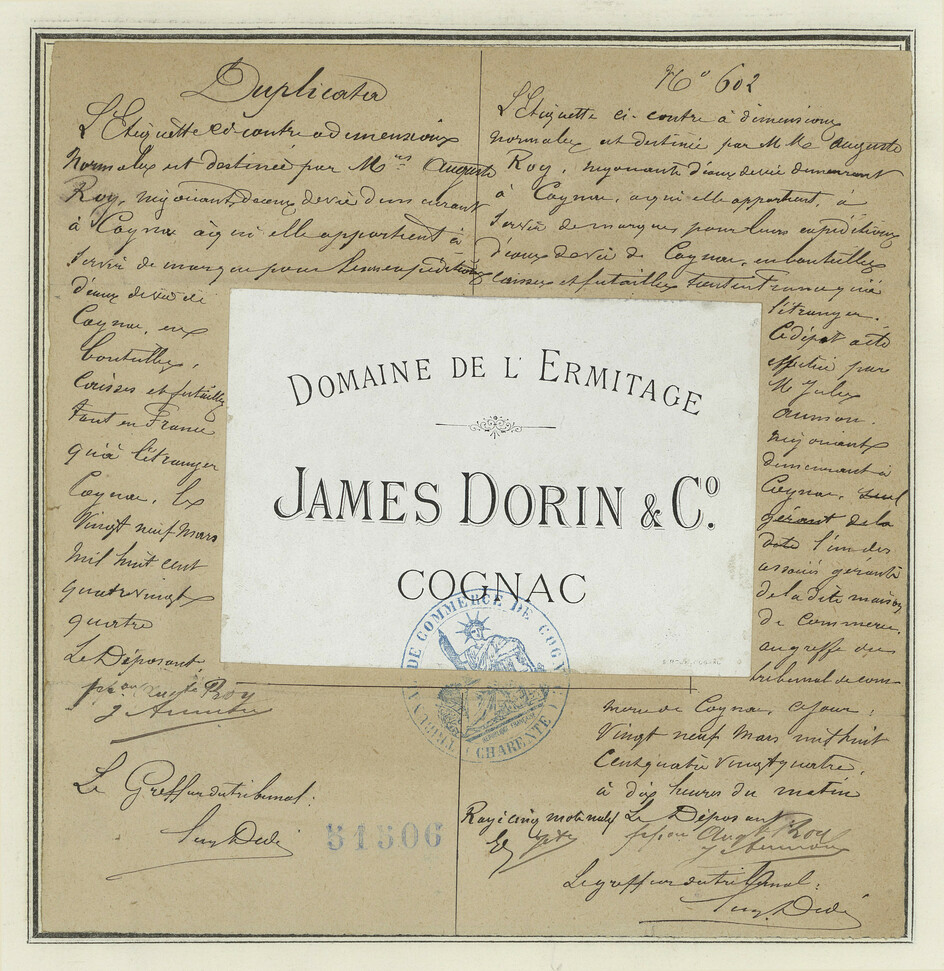 Duplicata
L'Etiquette ci-contre à dimensions
normales est destinée par Mrs Auguste
Roy, négociants d'eaux de vie demeurant
à Cognac à qui elle appartient à
servir de marque pour leurs expéditions
d'eaux de vie de
Cognac, en
bouteilles,
caisses et futailles
tant en France
qu'à l'étranger
Cognac, le
Vingt neuf Mars
mil huit cent
quatre vingt
quatre
Le Déposant,
Roy
Le Greffier du tribunal:
51506
No 602
L'Etiquette ci-contre à dimensions
normales est destinée par MM Auguste
Roy, négociants d'eaux de vie demeurant
à Cognac, à qui elle appartient, à
servir de marques pour leurs expéditions
d'eaux de vie de Cognac, en bouteilles
caisses et futailles tant en France qu'à
l'étranger.
Ce dépôt a été
effectué par
M Jules
négociant
demeurant à
Cognac, seul
gérant de la
dite l'un des
associés gérants
de la dite maison
de commerce,
au greffe du
tribunal de com-
merce de Cognac, ce jour:
Vingt neuf Mars mil huit
cent quatre vingt quatre,
à dix heures du matin
Rayé cinq mots nuls
Le Déposant
Augte Roy
Le greffier du tribunal:
DOMAINE DE L'ERMITAGE
JAMES DORIN & Co.
COGNAC
TRIBUNAL DE COMMERCE DE COGNAC
(CHARENTE)